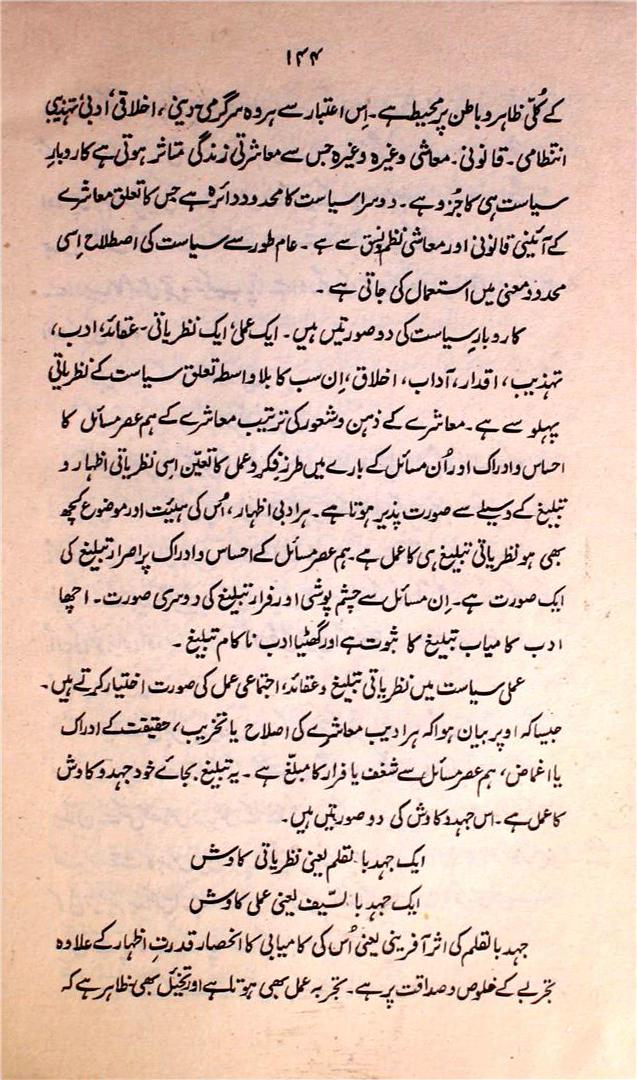 ۱۴۴
کے کُلّی ظاہر و باطن پر محیط ہے۔ اِس اعتبار سے ہر وہ سرگرمی دینی، اخلاقی، ادبی، تہذیبی
انتظامی۔ قانونی۔ معاشی وغیرہ وغیرہ جس سے معاشرتی زندگی متاثر ہوتی ہے کاروبارِ
سیاست ہی کا جُزو ہے۔ دوسرا سیاست کا محدود دائرہ ہے جس کا تعلق معاشرے
کے آئینی قانونی اور معاشی نظم و نسق سے ہے۔ عام طور سے سیاست کی اصطلاح اِسی
محدود معنی میں استعمال کی جاتی ہے۔
کاروبارِ سیاست کی دو صورتیں ہیں۔ ایک عملی ایک نظریاتی۔ عقائد، ادب،
تہذیب، اقدار، آداب، اخلاق، اِن سب کا بلاواسطہ تعلق سیاست کے نظریاتی
پہلو سے ہے۔ معاشرے کے ذہن و شعور کی ترتیب معاشرے کے ہم عصر مسائل کا
احساس و ادراک اور اُن مسائل کے بارے میں طرزِ فکر و عمل کا تعیّن اسی نظریاتی اظہار و
تبلیغ کے وسیلے سے صورت پذیر ہوتا ہے۔ ہر ادبی اظہار، اُس کی ہیئت اور موضوع کچھ
بھی ہو نظریاتی تبلیغ ہی کا عمل ہے۔ ہم عصر مسائل کے احساس و ادراک پر اصرار تبلیغ کی
ایک صورت ہے۔ اِن مسائل سے چشم پوشی اور فرار تبلیغ کی دوسری صورت۔ اچھا
ادب کامیاب تبلیغ کا ثبوت ہے اور گھٹیا ادب ناکام تبلیغ۔
عملی سیاست میں نظریاتی تبلیغ و عقائد، اجتماعی عمل کی صورت اختیار کرتے ہیں۔
جیسا کہ اوپر بیان ہوا کہ ہر ادیب معاشرے کی اصلاح یا تخریب، حقیقت کے ادراک
یا اغماض، ہم عصر مسائل سے شغف یا فرار کا مبلّغ ہے۔ یہ تبلیغ بجائے خود جہد و کاوش
کا عمل ہے۔ اس جہد و کاوش کی دو صورتیں ہیں۔
ایک جہد بالقلم یعنی نظریاتی کاوش
ایک جہد بالسّیف یعنی عملی کاوش
جہد بالقلم کی اثر آفرینی یعنی اُس کی کامیابی کا انحصار قدرتِ اظہار کے علاوہ
تجربے کے خلوص و صداقت پر ہے۔ تجربہ عمل بھی ہوتا ہے اور تخیّل بھی۔ ظاہر ہے کہ